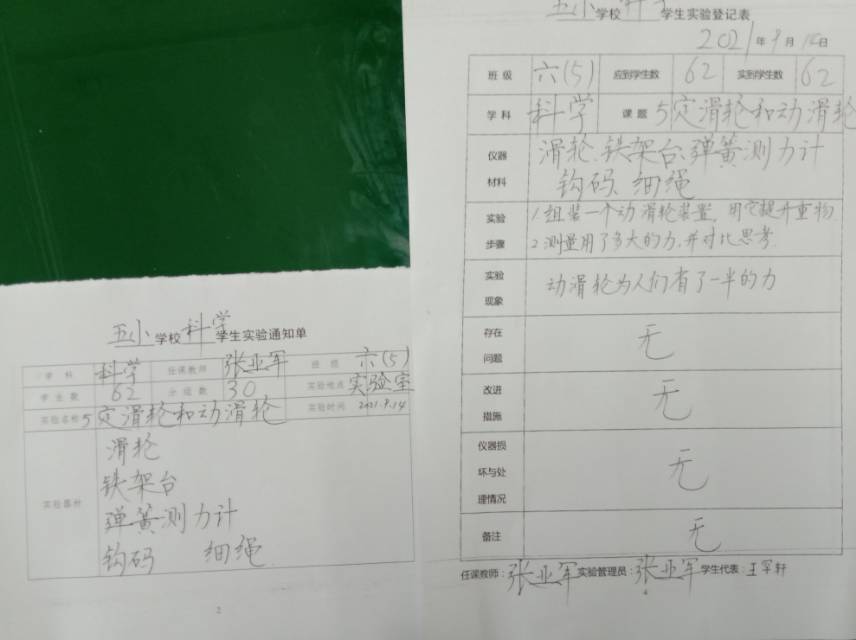 五小学校科学学生实验通知单
学科 科学 任课教师 张业军 班级 六(5)
学生数 62 分组数 30 实验地点 实验室
实验名称 5定滑轮和动滑轮 实验时间 2021.9.14
实验器材
滑轮
铁架台
弹簧测力计
钩码 细绳
2
五小学校科学学生实验登记表
2021年9月14日
班级 六(5) 应到学生数 62 实到学生数 62
学科 科学 课题 5定滑轮和动滑轮
仪器材料 滑轮、铁架台、弹簧测力计
钩码、细绳
实验步骤 1组装一个动滑轮装置,用它提升重物
2测量用了多大的力,并对比思考.
实验现象 动滑轮为人们省了一半的力
存在问题 无
改进措施 无
仪器损坏与处理情况 无
备注 无
任课教师:张业军 实验管理员:张业军 学生代表:王罕轩
4